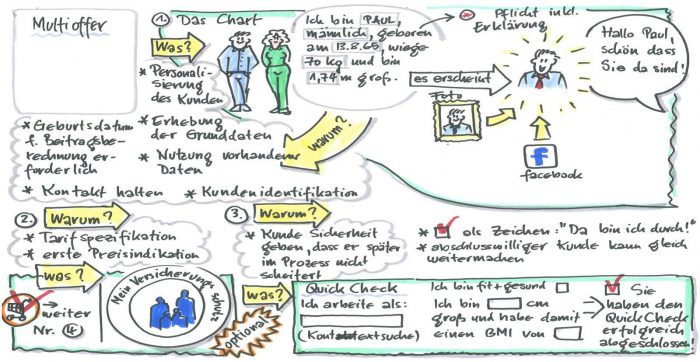 Multioffer
1. Das Chart
Was?
* Personali-
sierung
des Kunden
* Erhebung
der Grunddaten
* Nutzung vorhandener
Daten
* Geburtsdatum
f. Beitragsbe-
rechnung er-
forderlich
* Kontakt halten
* Kundenidentifikation
Warum?
Ich bin PAUL,
männlich, geboren
am 13.8.65, wiege
70 kg und bin
1,74 m groß.
* Pflicht inkl.
Erklärung
es erscheint
Foto
f
facebook
Hallo Paul,
schön dass
Sie da sind!
2. Warum?
* Tarifspezifikation
* erste Preisindikation
Was?
weiter
Nr. 4
Mein Versicherungsschutz
optional
3. Warum?
* Kunde Sicherheit
geben, dass er später
im Prozess nicht
scheitert
* als Zeichen: "Da bin ich durch!"
* abschlusswilliger Kunde kann gleich
weitermachen
Was?
Quick Check
Ich arbeite als:
(Kontextsuche)
Ich bin fit + gesund
Ich bin cm
groß und habe damit
einen BMI von
Sie
haben den
Quick Check
erfolgreich
abgeschlossen!